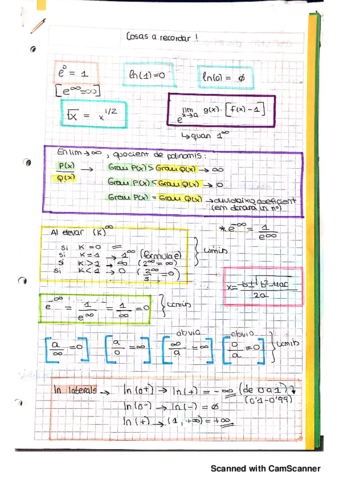 Cosas a recordar!
e⁰ = 1
ln(1)=0
ln(0) = ∅
[e^∞=∞]
√x = x^1/2
e^lim x→a g(x)·[f(x)-1]
↳ quan 1^∞
En lim → ∞, quocient de polinomis:
P(x) → Grau P(x) > Grau Q(x) → ∞
Q(x) Grau P(x) < Grau Q(x) → 0
Grau P(x) = Grau Q(x) → dividir coeficient
(em donarà un nº)
Al elevar (K)^∞
* e^-∞ = 1/e^∞
si K=0 =
si K=1 → 1^∞ (fórmula e)
si K>1 → ∞ (2^∞=∞)
si K<1 → 0
límits
x= -b±√b²-4ac / 2a
e^-∞ = 1/e^∞ = 1/∞ = 0 límits
obvio obvio
[a/∞=0] [a/0=∞] [∞/a=∞] [0/a=0] límits
ln laterals → ln(0+) → ln(+) = -∞ (de 0 a 1)
(0'1-0'99)
ln(0-) → ln(-) = ∅
ln(+) → (1,+∞) = +∞
Scanned with CamScanner